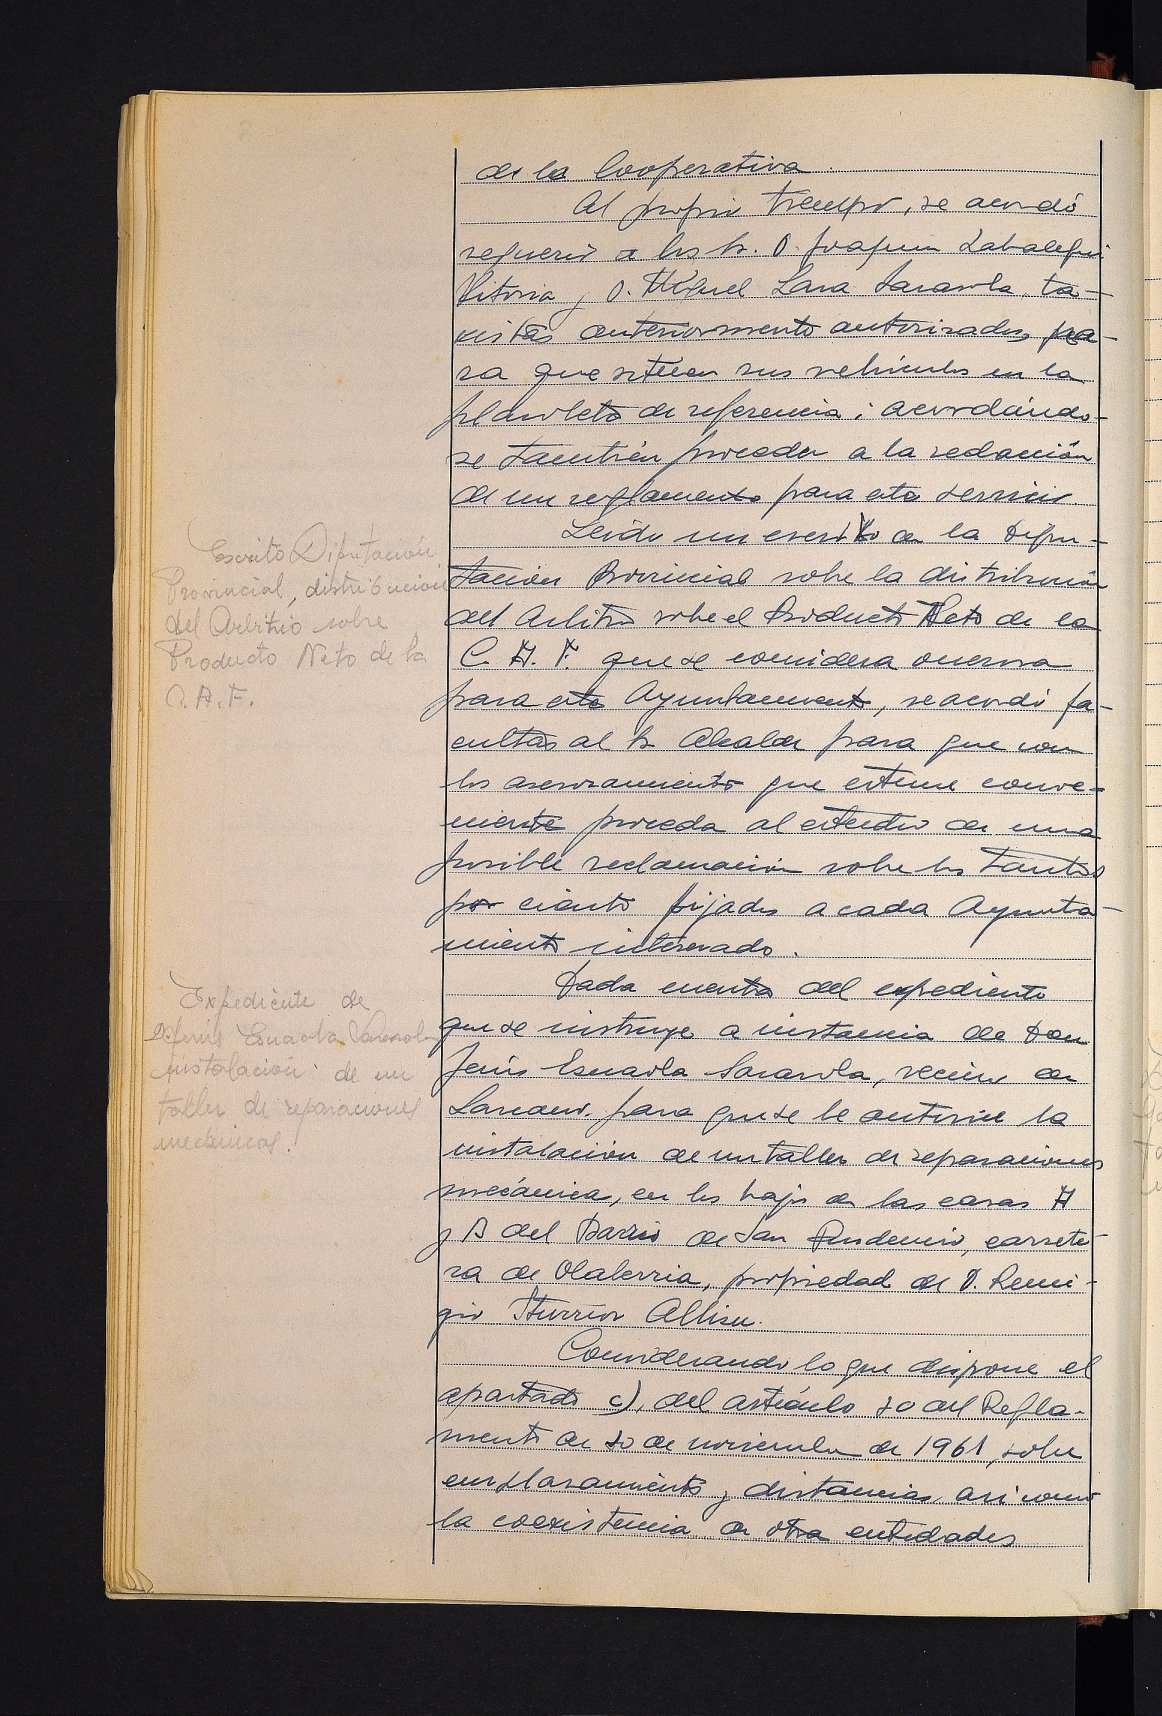 de la Cooperativa.
Al propio tiempo, se acordó
requerir a los Sr. D. Joaquin Zabalegui
Vitoria y D. Miguel Lasa Sarasola, ta-
xistas anteriormente autorizados, pa-
ra que sitúen sus vehículos en la
plazoleta de referencia; acordándo-
se también proceder a la redacción
de un reglamento para este servicio.
Leído un escrito de la Dipu-
Escrito Diputación
Provincial, distribucion
del Arbitrio sobre
Producto Neto de la
C.A.F.
tación Provincial sobre la distribución
del Arbitrio sobre el Producto Neto de la
C. A. F. que se considera onerosa
para este Ayuntamiento, se acordó fa-
cultar al Sr. Alcalde para que con
los asesoramientos que estime conve-
niente proceda al estudio de una
posible reclamación sobre los tantos
por ciento fijados a cada Ayunta-
miento interesado.
Dada cuenta del expediente
Expediente de
D. Jesús Esnaola
instalación de un
taller de reparaciones
mecánicas.
que se instruye a instancia de Don
Jesús Esnaola Sarasola, vecino de
Lazcano, para que se le autorice la
instalación de un taller de reparaciones
mecánica, en los bajos de las casas A
y B del Barrio de San Prudencio, carrete-
ra de Olaberria, propiedad de D. Remi-
gio Iturrioz Albisu.
Considerando lo que dispone el
apartado c), del artículo 30 del Regla-
mento de 30 de noviembre de 1961, sobre
emplazamiento y distancias asi como
la coexistencia de otra entidades